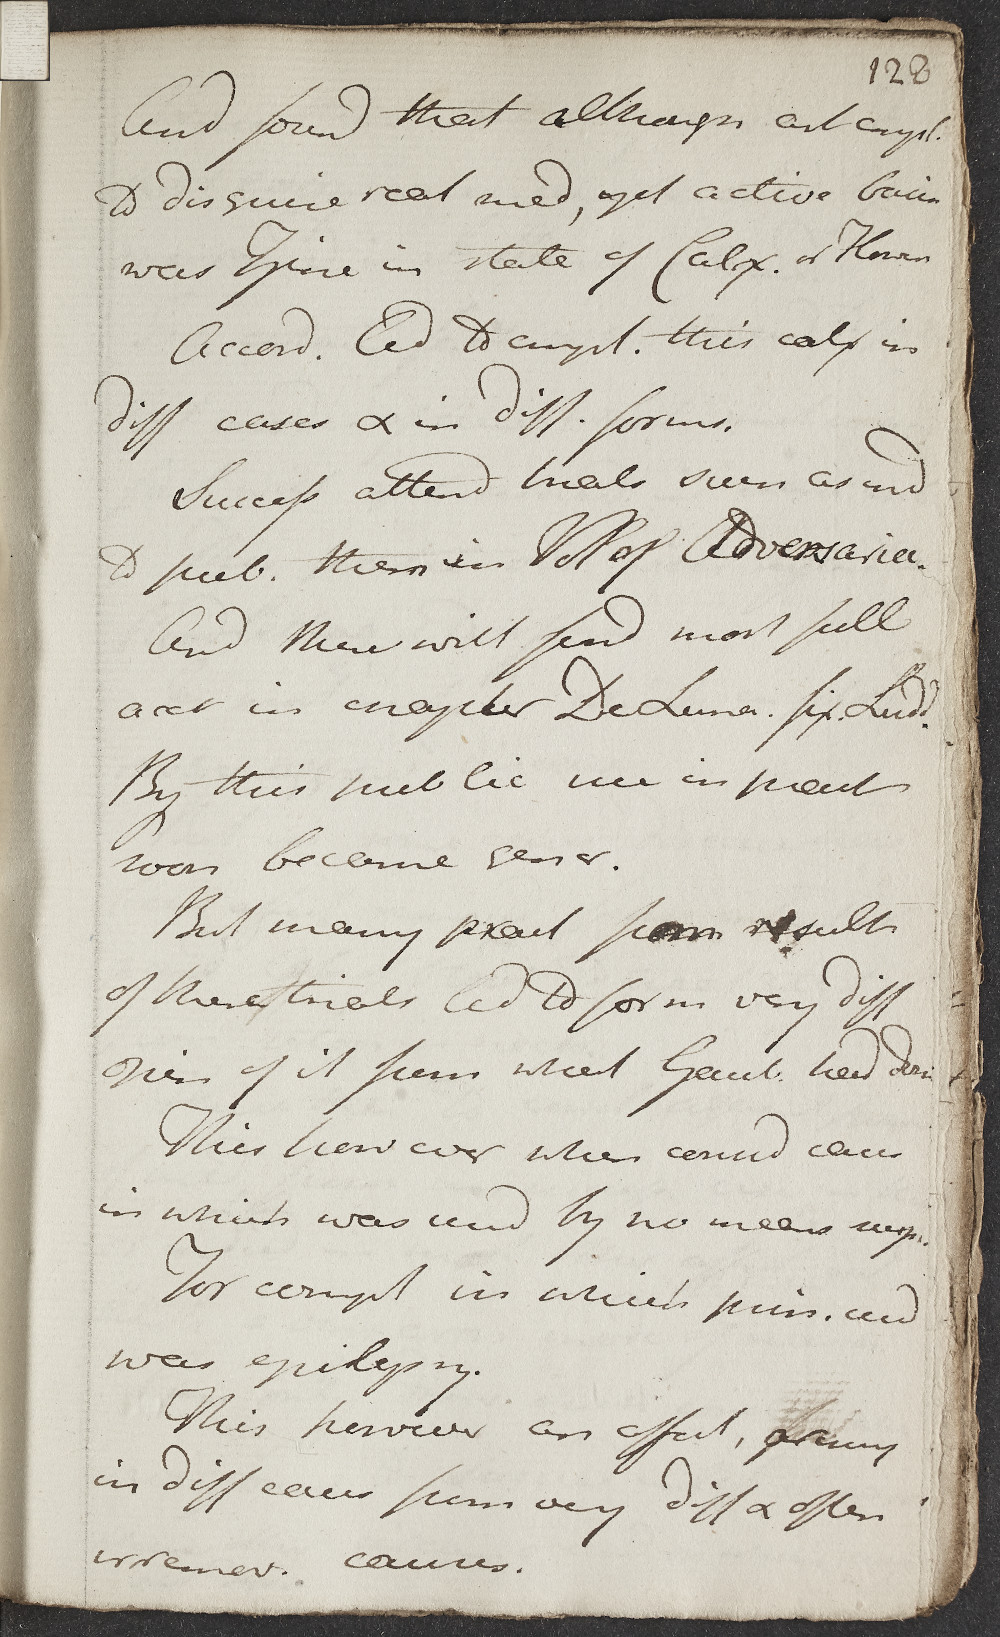 128
And found that although art empl.
to disguise real med, yet active basis
was Zinc in state of Calx. or Flowers
Accord. led to empl. this calx in
diff cases & in diff. forms.
Success attend trials such as ind
to pub. them in Vol of Adversaria.
And there will find most full
acct in chapter De Luna. fix. Ludd.
By this public use in pract
soon became gener.
But many pract from results
of these trials led to form very diff
opin of it from what Gaub. had
This however when consid cases
in which was used by no means surp.
For compl in which prin. used
was epilepsy.
This however an effect, arising
in diff cases from very diff & often
irremov. causes.